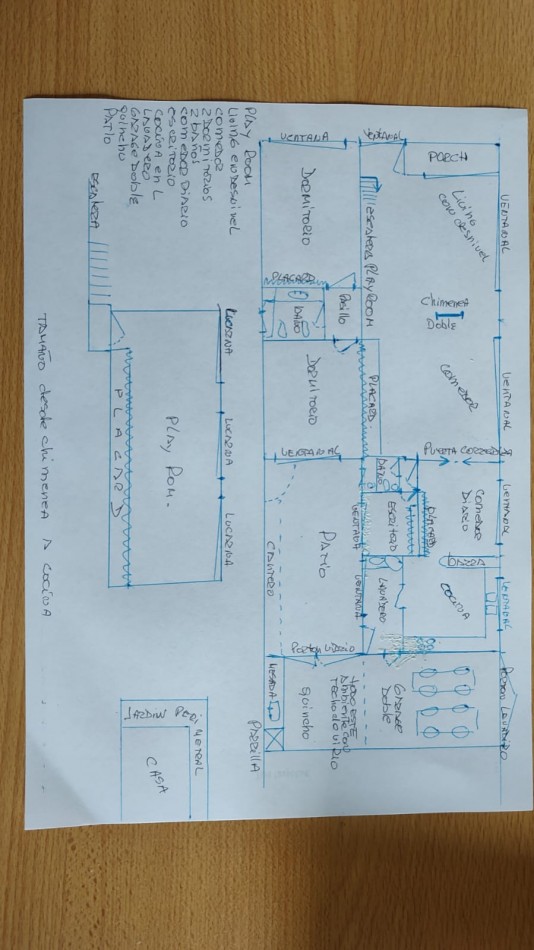 PLAY ROOM
LIVING EN DESNIVEL
COMEDOR
2 DORMITORIOS
2 BAÑOS
COMEDOR DIARIO
ESCRITORIO
COCINA EN L
LAVADERO
GARAGE DOBLE
QUINCHO
PATIO
VENTANA
VENTANAL
PORCH
VENTANAL
DORMITORIO
ESCALERA PLAY ROOM
Living
con desnivel
PLACARD
BAÑO
Pasillo
Chimenea
Doble
DORMITORIO
PLACARD
COMEDOR
VENTANAL
VENTANAL
BAÑO
PUERTA CORREDIZA
PATIO
CANTERO
VENTANA
ESCRITORIO
PLACARD
COMEDOR
DIARIO
VENTANAL
BARRA
VENTANA
LAVADERO
COCINA
VENTANAL
PORTON VIDRIO
MESADA
PARRILLA
QUINCHO
TODO ESTE
AMBIENTE CON
TECHO DE VIDRIO
GARAGE
Doble
ESCALERA
LUCARNA
LUCARNA
LUCARNA
PLAY ROOM.
PLACARD
TAMAÑO desde chimenea A COCINA
JARDIN PERIMETRAL
CASA